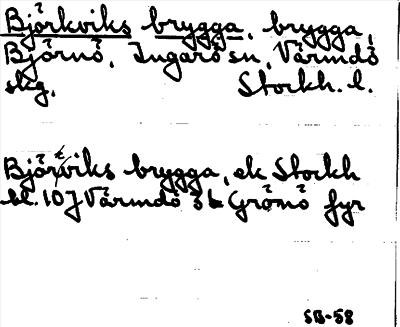 Björkviks brygga, brygga,
Björnö, Ingarö sn, Värmdö
skg, Stockh. l.
Björviks brygga, ek Stockh
bl. 10J Värmdö 3b Grönö fyr
SB-58